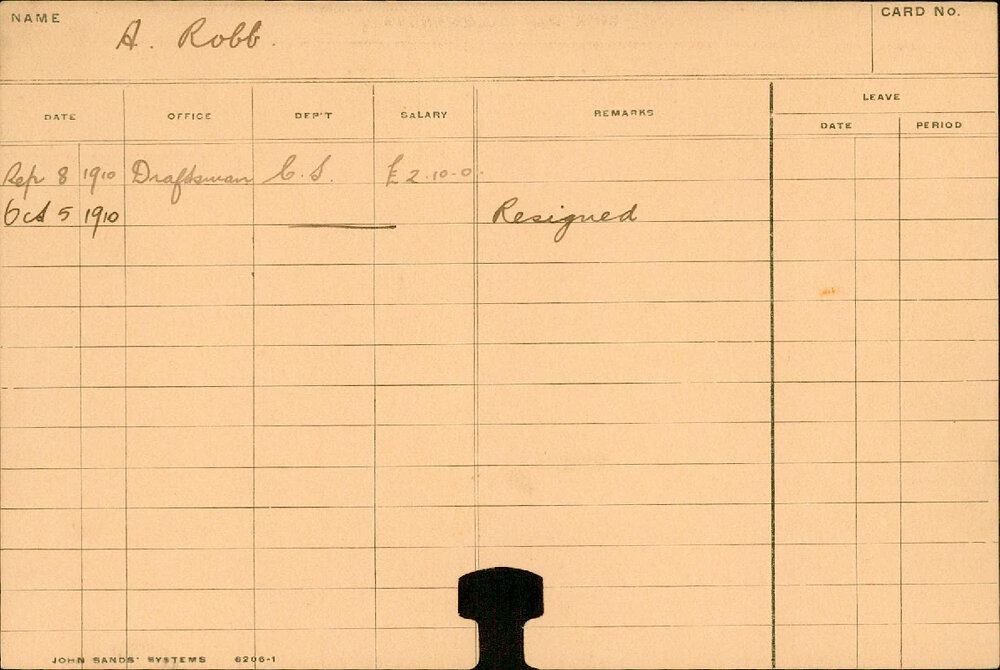 NAME
A. Robb.
CARD No.
DATE OFFICE DEP'T SALARY REMARKS LEAVE
DATE PERIOD
Sep 8 1910 Draftsman C.S. £2.10-0.
Oct 5 1910 Resigned
JOHN SANDS' SYSTEMS 6206-1